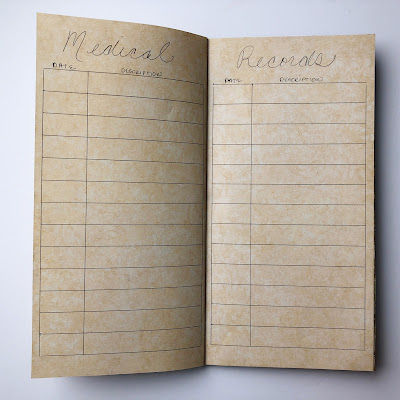 Medical
DATE DESCRIPTION
Records
DATE DESCRIPTION